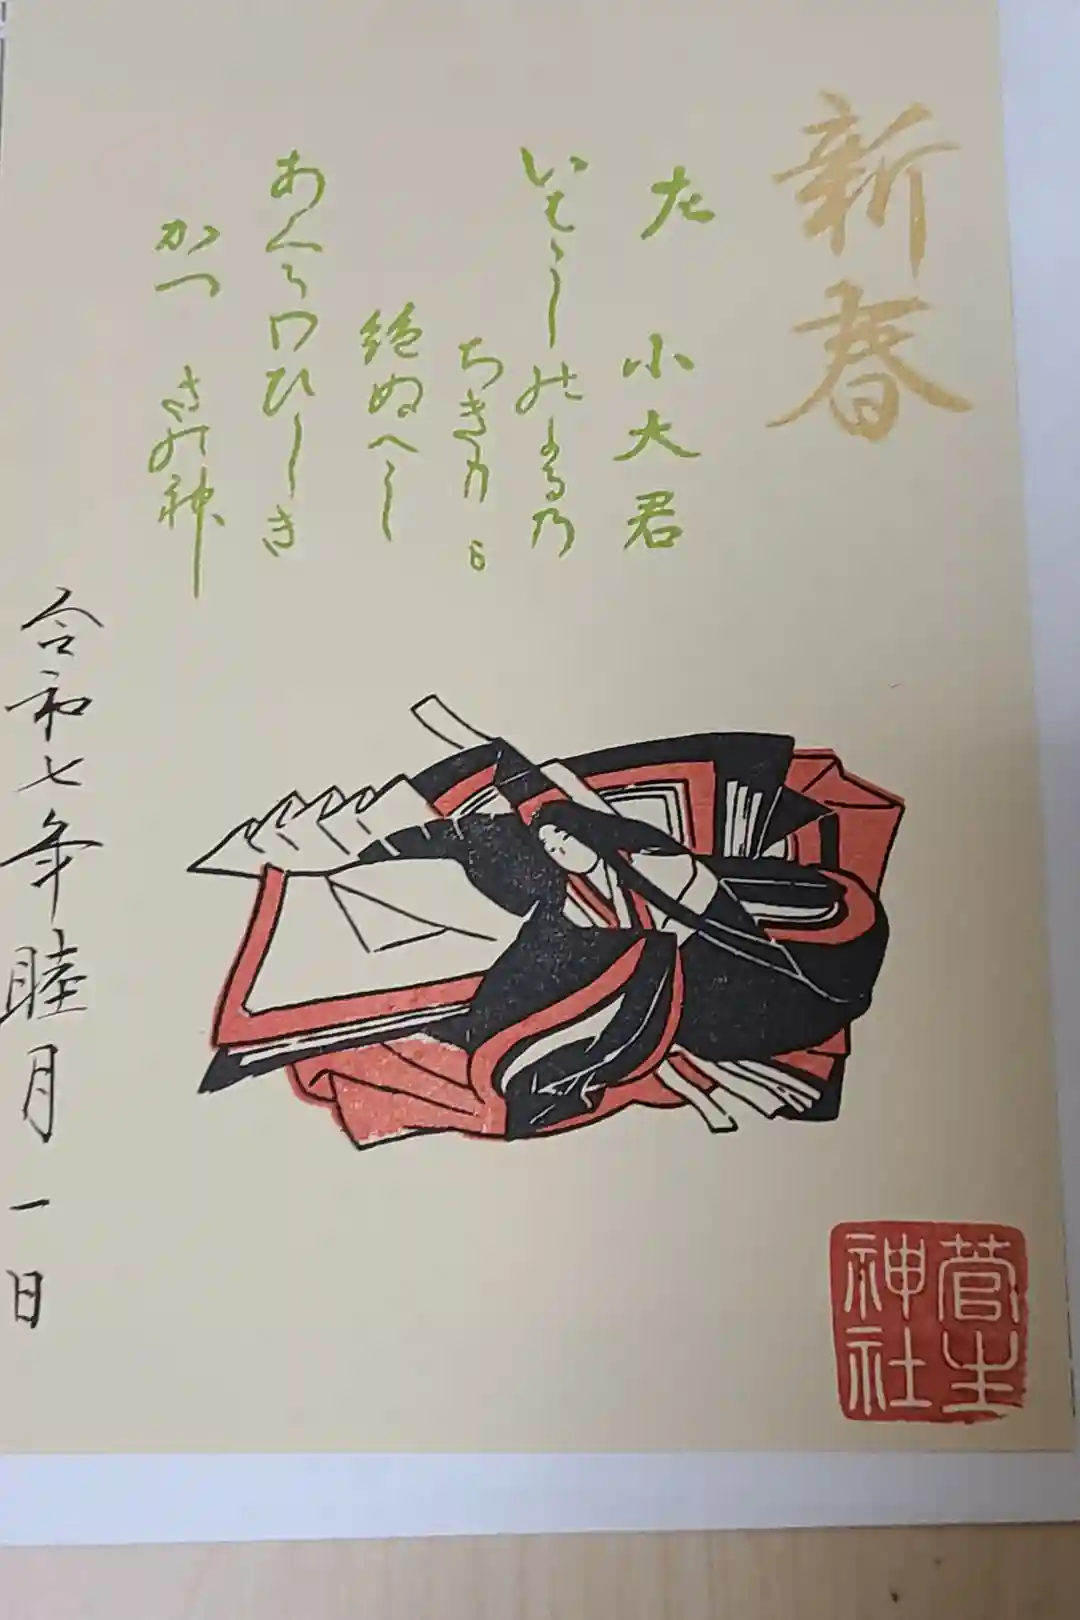 新春
左 小大君
いはゝしのよるの
ちきりも
絶ぬへし
あくるわひしき
かつらきの神
令和七年睦月一日
菅生
神社